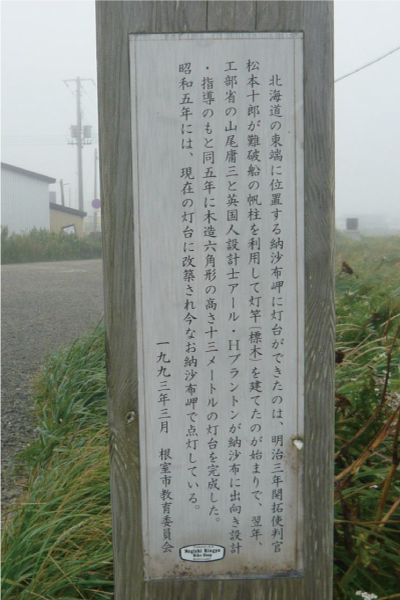 北海道の東端に位置する納沙布岬に灯台ができたのは、明治三年開拓使判官
松本十郎が難破船の帆柱を利用して灯竿(標木)を建てたのが始まりで、翌年、
工部省の山尾庸三と英国人設計士アール・Hブラントンが納沙布に出向き設計
・指導のもと同五年に木造六角形の高さ十三メートルの灯台を完成した。
昭和五年には、現在の灯台に改築され今なお納沙布岬で点灯している。
一九九三年三月　根室市教育委員会